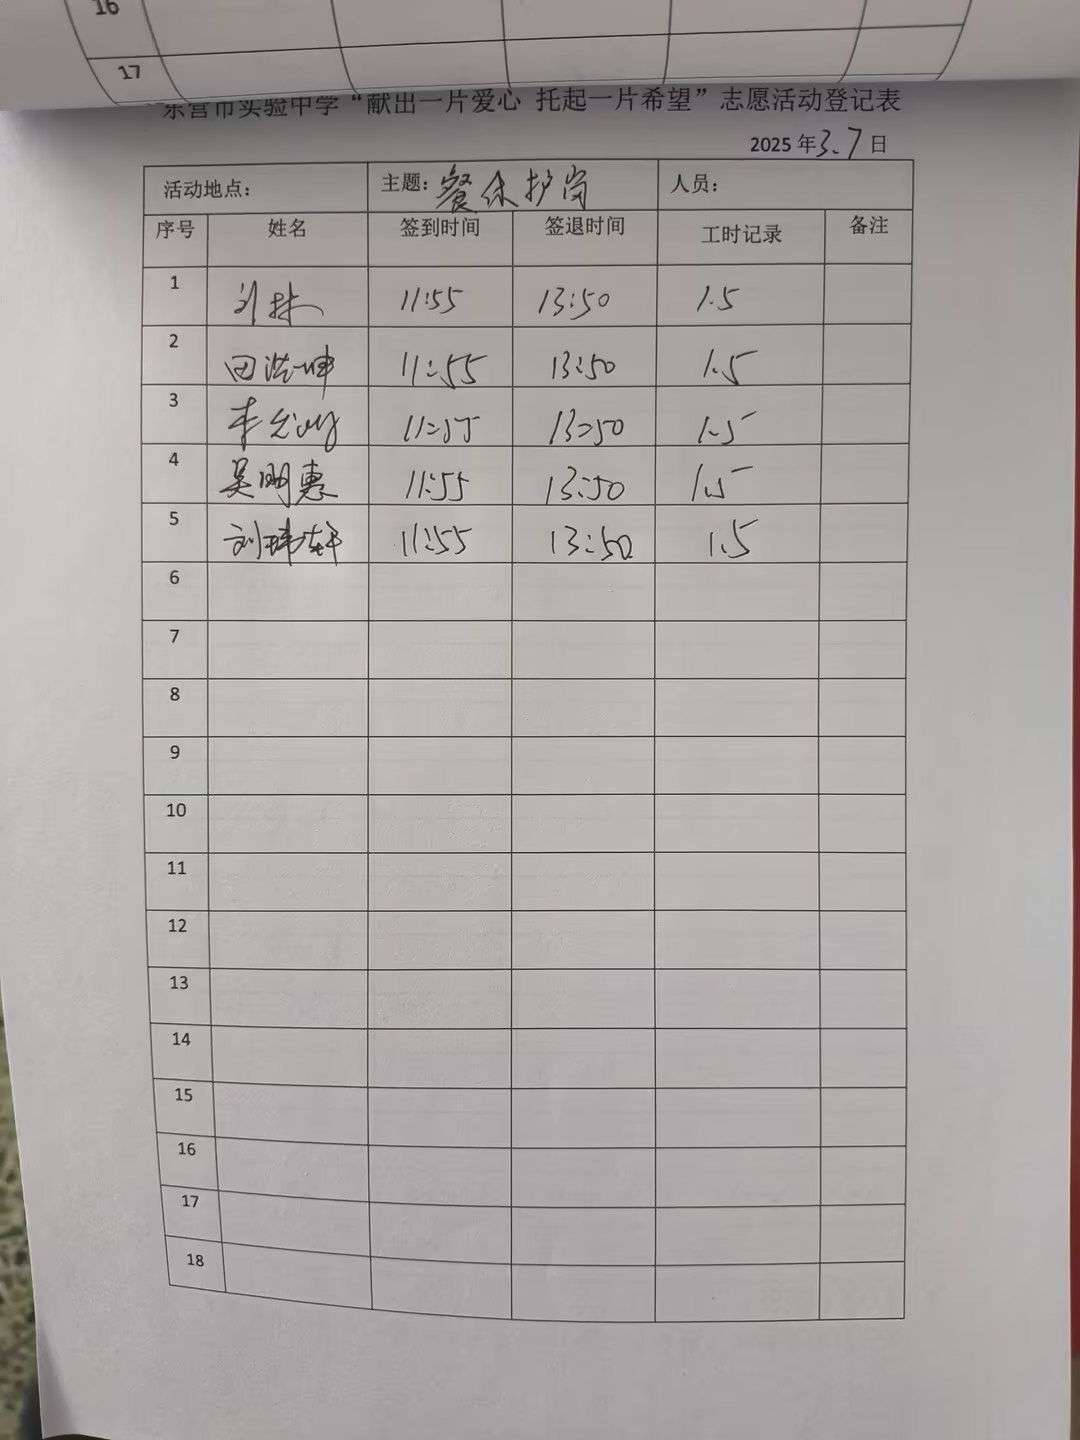 16
17
东营市实验中学“献出一片爱心 托起一片希望”志愿活动登记表
2025年3.7日
活动地点： 主题：餐休护岗 人员：
序号 姓名 签到时间 签退时间 工时记录 备注
1 11:55 13:50 1.5
2 田浩坤 11:55 13:50 1.5
3 11:55 13:50 1.5
4 吴明惠 11:55 13:50 1.5
5 刘玮轩 11:55 13:50 1.5
6
7
8
9
10
11
12
13
14
15
16
17
18